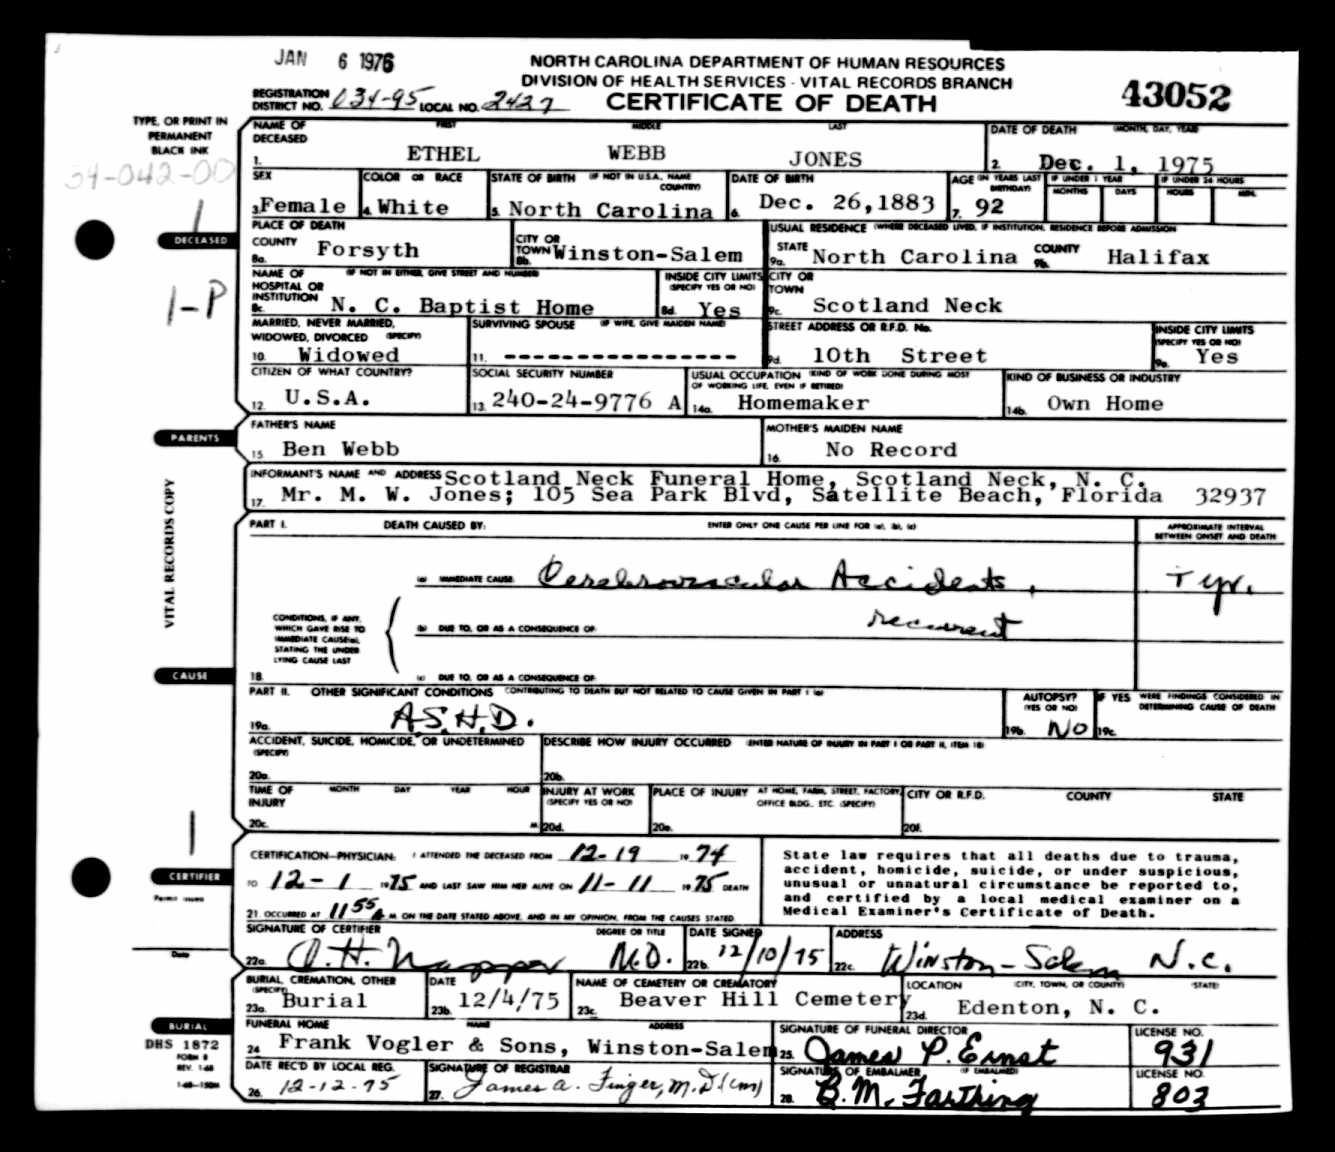 JAN 6 1976
NORTH CAROLINA DEPARTMENT OF HUMAN RESOURCES
DIVISION OF HEALTH SERVICES - VITAL RECORDS BRANCH
REGISTRATION DISTRICT NO. 034-95 LOCAL NO. 2427 CERTIFICATE OF DEATH 43052
TYPE, OR PRINT IN PERMANENT BLACK INK
34-042-00
NAME OF DECEASED FIRST MIDDLE LAST DATE OF DEATH (MONTH, DAY, YEAR)
1. ETHEL WEBB JONES 2. Dec. 1, 1975
SEX COLOR OR RACE STATE OF BIRTH (IF NOT IN U.S.A. NAME COUNTRY) DATE OF BIRTH AGE (IN YEARS LAST BIRTHDAY) IF UNDER 1 YEAR IF UNDER 24 HOURS
MONTHS DAYS HOURS MIN.
3. Female 4. White 5. North Carolina 6. Dec. 26,1883 7. 92
1
DECEASED
PLACE OF DEATH USUAL RESIDENCE (WHERE DECEASED LIVED, IF INSTITUTION, RESIDENCE BEFORE ADMISSION)
COUNTY CITY OR TOWN STATE COUNTY
8a. Forsyth 8b. Winston-Salem 9a. North Carolina 9b. Halifax
1-P
NAME OF HOSPITAL OR INSTITUTION (IF NOT IN EITHER, GIVE STREET AND NUMBER) INSIDE CITY LIMITS (SPECIFY YES OR NO) CITY OR TOWN
8c. N. C. Baptist Home 8d. Yes 9c. Scotland Neck
MARRIED, NEVER MARRIED, WIDOWED, DIVORCED (SPECIFY) SURVIVING SPOUSE (IF WIFE, GIVE MAIDEN NAME) STREET ADDRESS OR R.F.D. No. INSIDE CITY LIMITS (SPECIFY YES OR NO)
10. Widowed 11. ---------------- 9d. 10th Street 9e. Yes
CITIZEN OF WHAT COUNTRY? SOCIAL SECURITY NUMBER USUAL OCCUPATION (KIND OF WORK DONE DURING MOST OF WORKING LIFE, EVEN IF RETIRED) KIND OF BUSINESS OR INDUSTRY
12. U.S.A. 13. 240-24-9776 A 14a. Homemaker 14b. Own Home
PARENTS
FATHER'S NAME MOTHER'S MAIDEN NAME
15. Ben Webb 16. No Record
INFORMANT'S NAME AND ADDRESS Scotland Neck Funeral Home, Scotland Neck, N. C.
17. Mr. M. W. Jones; 105 Sea Park Blvd, Satellite Beach, Florida 32937
VITAL RECORDS COPY
PART I. DEATH CAUSED BY: ENTER ONLY ONE CAUSE PER LINE FOR (a), (b), (c) APPROXIMATE INTERVAL BETWEEN ONSET AND DEATH
(a) IMMEDIATE CAUSE Cerebrovascular Accidents, 1 yr.
CONDITIONS, IF ANY, WHICH GAVE RISE TO IMMEDIATE CAUSE(a), STATING THE UNDERLYING CAUSE LAST
(b) DUE TO, OR AS A CONSEQUENCE OF: recurrent
CAUSE
18. (c) DUE TO, OR AS A CONSEQUENCE OF:
PART II. OTHER SIGNIFICANT CONDITIONS CONTRIBUTING TO DEATH BUT NOT RELATED TO CAUSE GIVEN IN PART I (a) AUTOPSY? (YES OR NO) IF YES WERE FINDINGS CONSIDERED IN DETERMINING CAUSE OF DEATH
19a. A.S.H.D. 19b. NO 19c.
ACCIDENT, SUICIDE, HOMICIDE, OR UNDETERMINED (SPECIFY) DESCRIBE HOW INJURY OCCURRED (ENTER NATURE OF INJURY IN PART I OR PART II, ITEM 18)
20a. 20b.
TIME OF INJURY MONTH DAY YEAR HOUR INJURY AT WORK (SPECIFY YES OR NO) PLACE OF INJURY AT HOME, FARM, STREET, FACTORY, OFFICE BLDG., ETC. (SPECIFY) CITY OR R.F.D. COUNTY STATE
20c. M. 20d. 20e. 20f.
1
CERTIFIER
CERTIFICATION—PHYSICIAN: I ATTENDED THE DECEASED FROM 12-19 19 74
TO 12-1 1975 AND LAST SAW HIM HER ALIVE ON 11-11 1975 DEATH
21. OCCURRED AT 11 55 A. M. ON THE DATE STATED ABOVE, AND IN MY OPINION, FROM THE CAUSES STATED
State law requires that all deaths due to trauma,
accident, homicide, suicide, or under suspicious,
unusual or unnatural circumstance be reported to,
and certified by a local medical examiner on a
Medical Examiner's Certificate of Death.
Permit Issued
Date
SIGNATURE OF CERTIFIER DEGREE OR TITLE DATE SIGNED ADDRESS
22a. M.D. 22b. 12/10/75 22c. Winston-Salem N.C.
BURIAL, CREMATION, OTHER (SPECIFY) DATE NAME OF CEMETERY OR CREMATORY LOCATION (CITY, TOWN, OR COUNTY) (STATE)
23a. Burial 23b. 12/4/75 23c. Beaver Hill Cemetery 23d. Edenton, N. C.
BURIAL
DHS 1872
FORM 8
REV. 1-68
1-68—150M
FUNERAL HOME NAME ADDRESS SIGNATURE OF FUNERAL DIRECTOR LICENSE NO.
24 Frank Vogler & Sons, Winston-Salem 25. James P. Ernst 931
DATE REC'D BY LOCAL REG. SIGNATURE OF REGISTRAR SIGNATURE OF EMBALMER (IF EMBALMED) LICENSE NO.
26. 12-12-75 27. James A. Finger, M.D (cm) 28. B.M. Farthing 803